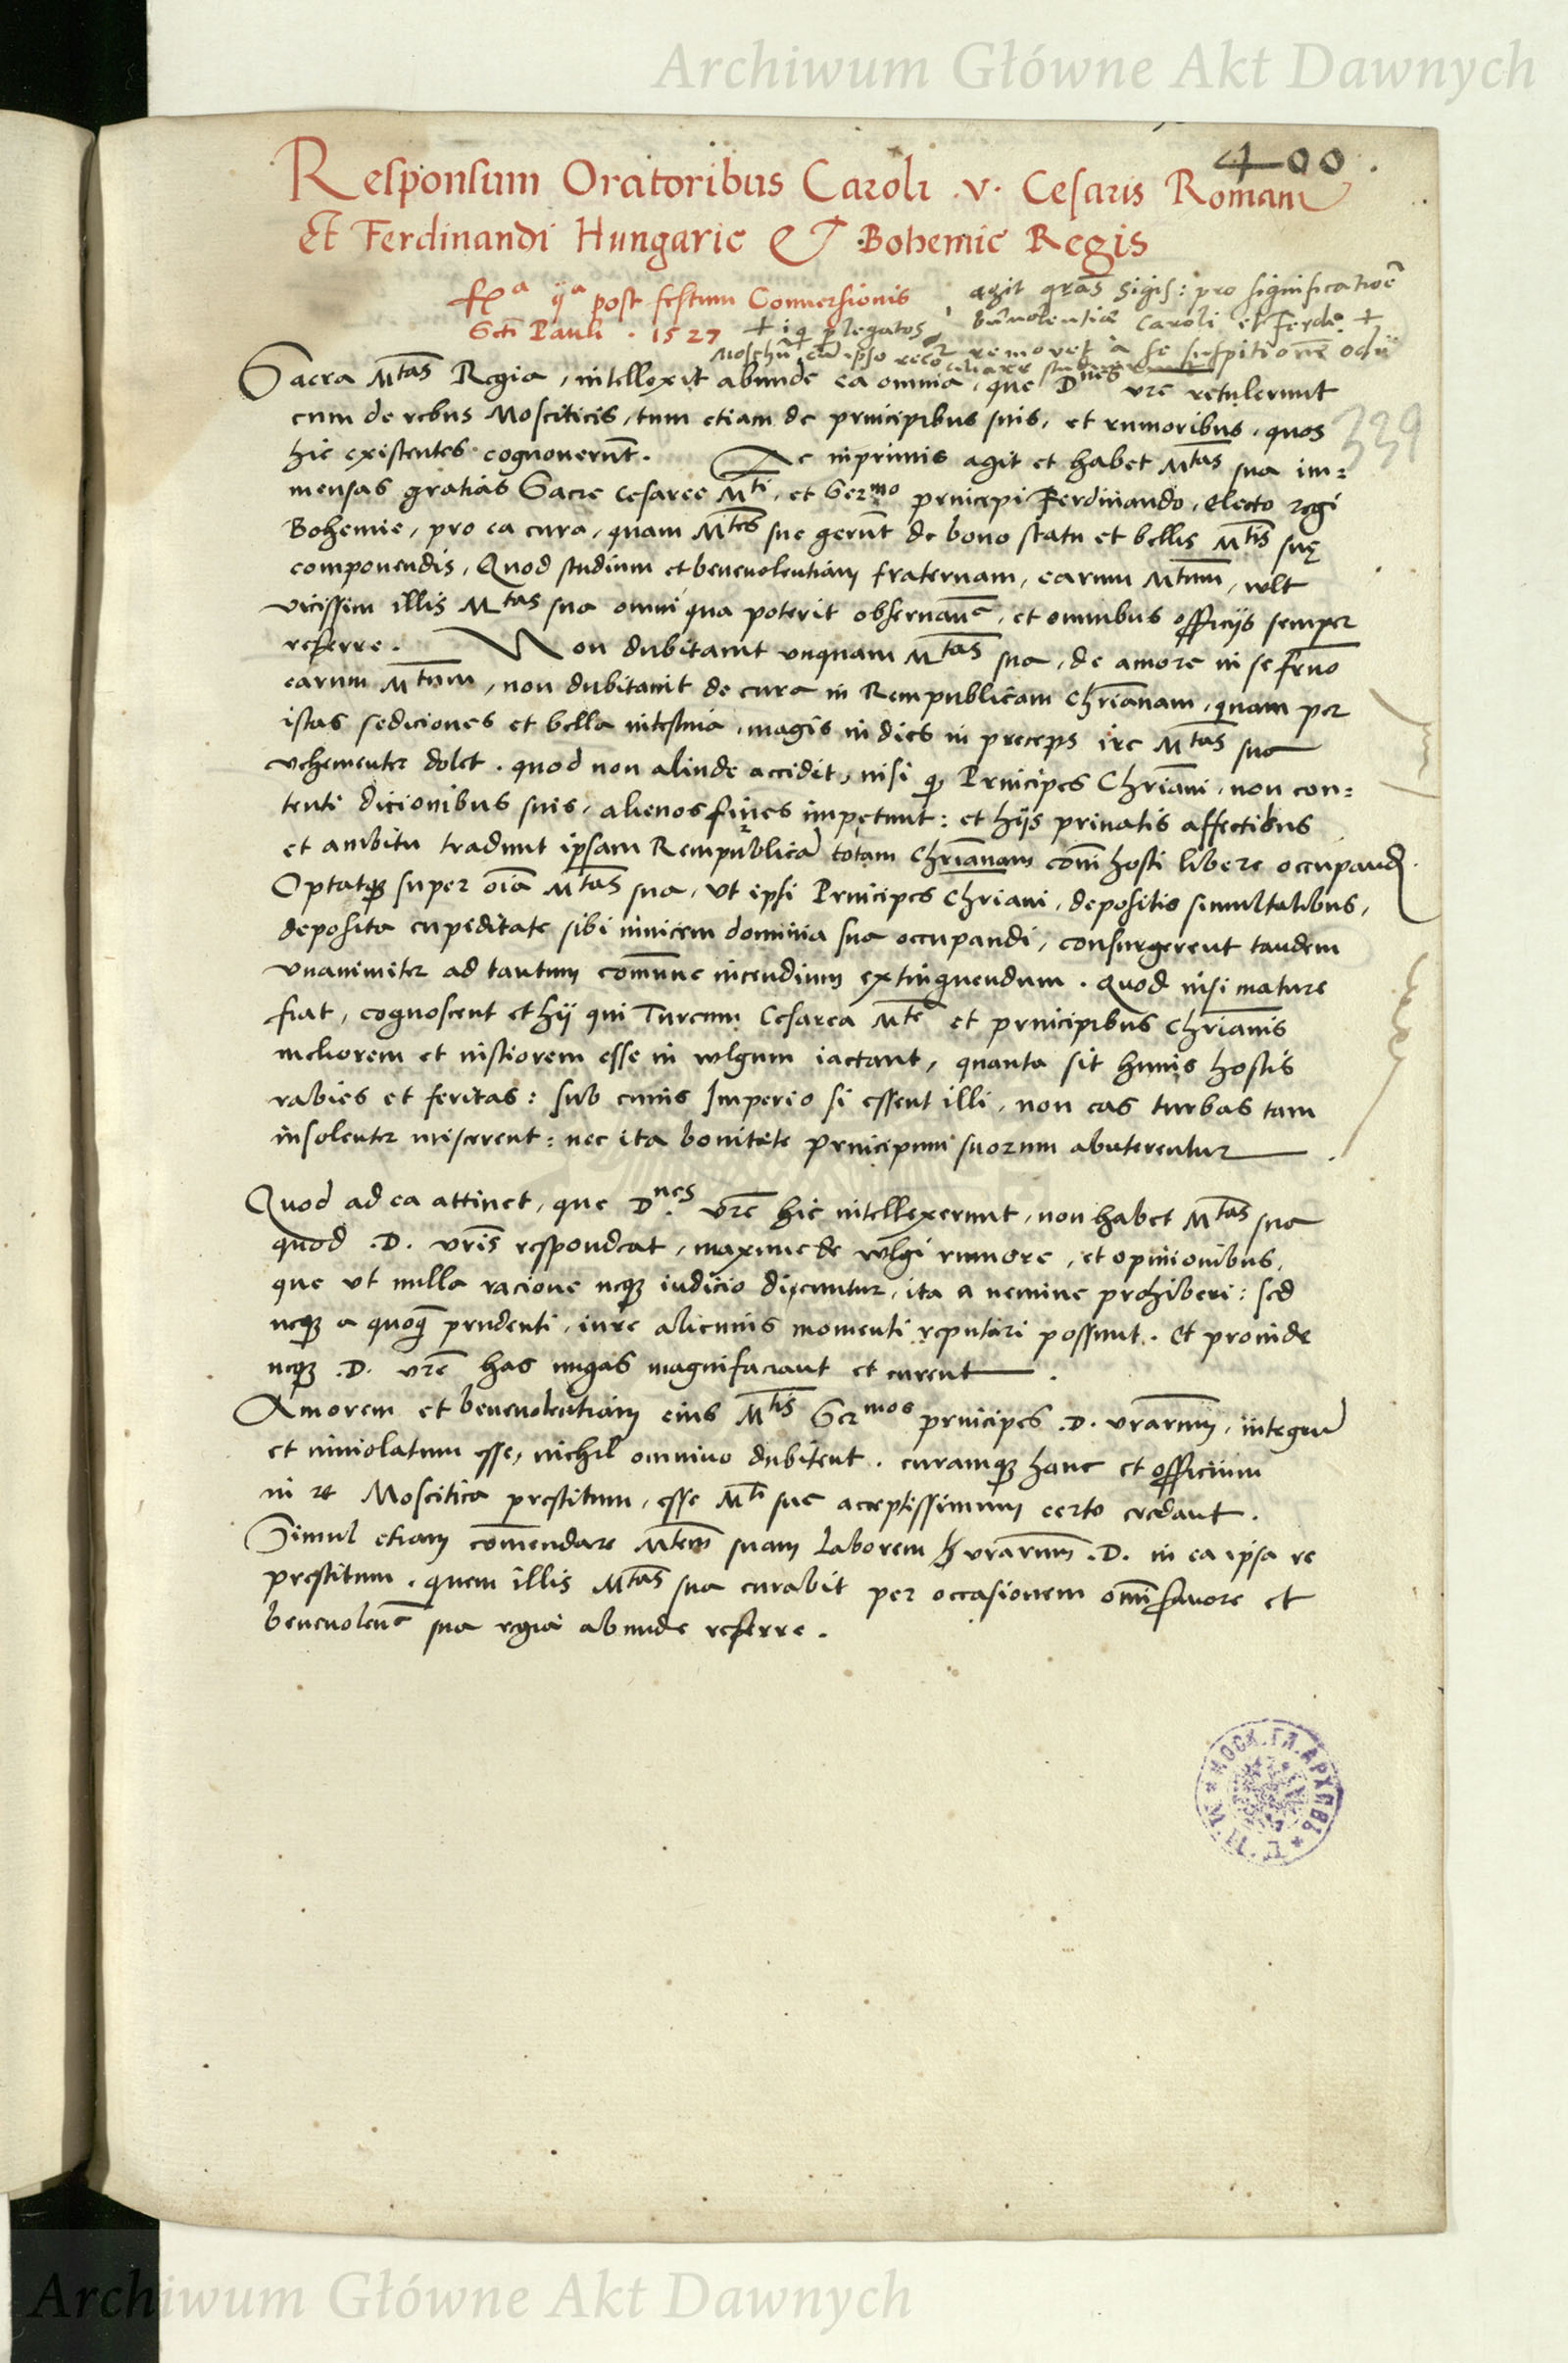 Archiwum Główne Akt Dawnych
400.
Responsum Oratoribus Caroli .v. Cesaris Romani
Et Ferdinandi Hungarie Et Bohemie Regis
fr̃a ija post festum Conversionis
Scti Pauli . 1527
agit gras̃ Sigis: pro significatione
benevolentiæ Caroli et Ferd. +
+ iq̃ p legatos
Moschũ cũ ipso removet a se suspitionẽ odii
Sacra Mtas Regia, intellexit abunde ea omnia, que Dnes vre retulerunt
cum de rebus Mosciticis, tum etiam de principibus suis, et rumoribus, quos
hic existentes cognoverũt. Ac inprimis agit et habet Mtas sua im:
339
mensas gratias Sacre Cesaree Mti, et Sermo principi Ferdinando, electo regi
Bohemie, pro ea cura, quam Mtes sue gerũt de bono statu et bellis Mtis suę
componendis, Quod studium et benevolentiam fraternam, earum Mtum, vult
vicissim illis Mtas sua omni qua poterit observanc̃, et omnibus officijs semper
referre. Non dubitavit unquam Mtas sua, de amore in se fr̃no
earum Mtum, non dubitavit de cura in Rempublicam Chrianam, quam per
istas sediciones et bella intestina, magis in dies in preceps ire Mtas sua
vehementer dolet. quod non aliunde accidit, nisi q̃ Principes Chriani, non con:
tenti dicionibus suis, alienos fines impetunt: et hijs privatis affectibus
et ambitu tradunt ipsam Rempublicã totam Chrianam com̃i hosti libere occupand.
Optatq super oĩa Mtas sua, ut ipsi Principes Chriani, depositis simultatibus,
deposita cupiditate sibi invicem dominia sua occupandi, consurgerent tandem
unanimiter ad tantum com̃une incendium extinguendum. Quod nisi mature
fiat, cognoscent et hij qui Turcum Cesarea Mte et principibus Chrianis
meliorem et iustiorem esse in vulgum iactant, quanta sit huius hostis
rabies et feritas: sub cuius Imperio si essent illi, non eas turbas tam
insolenter miscerent: nec ita bonitate principum suorum abuterentur.
Quod ad ea attinet, que Dnes vrẽ hic intellexerunt, non habet Mtas sua
quod .D. vris respondeat, maxime de vulgi rumore, et opinionibus,
que ut nulla racione neq iudicio dicuntur, ita a nemine prohiberi: sed
neq a quoq̃ prudenti, iure alicuius momenti reputari possunt. Et proinde
neq .D. vrẽ has nugas magnifaciant et curent.
Amorem et benevolentiam eius Mtis Sermos principes .D. vrarum, integrũ
et inviolatum esse, nichil omnino dubitent. curamq hanc et officium
in re Moscitica prestitum, esse Mti sue acceptissimum certo credant.
Simul etiam com̃endare Mtem suam laborem vrarum .D. in ea ipsa re
prestitum. quem illis Mtas sua curabit per occasionem om̃i favore et
benevolenc̃ sua regia abunde referre.
МОСК. ГЛ. АРХИВЪ
Archiwum Główne Akt Dawnych